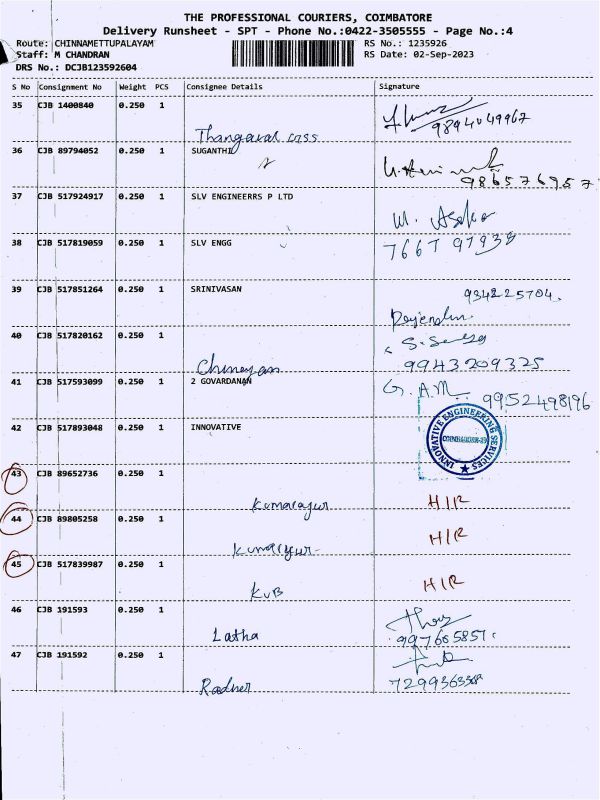 THE PROFESSIONAL COURIERS, COIMBATORE
Delivery Runsheet - SPT - Phone No.:0422-3505555 - Page No.:4
Route: CHINNAMETTUPALAYAM RS No.: 1235926
Staff: M CHANDRAN RS Date: 02-Sep-2023
DRS No.: DCJB123592604
S No Consignment No Weight PCS Consignee Details Signature
35 CJB 1400840 0.250 1
9894049967
36 CJB 89794052 0.250 1 SUGANTHI
986576957
37 CJB 517924917 0.250 1 SLV ENGINEERRS P LTD
M. Asoka
38 CJB 517819059 0.250 1 SLV ENGG 7667 97938
39 CJB 517851264 0.250 1 SRINIVASAN 9342225704.
40 CJB 517820162 0.250 1
Chinnayan 9943209325
41 CJB 517593099 0.250 1 2 GOVARDANAN G. A.M. 9952498196
42 CJB 517893048 0.250 1 INNOVATIVE
INNOVATIVE ENGINEERING SERVICES
43 CJB 89652736 0.250 1
Kumarayur H/R
44 CJB 89805258 0.250 1
Kumarayur H/R
45 CJB 517839987 0.250 1
KVB H/R
46 CJB 191593 0.250 1
Latha 997665851.
47 CJB 191592 0.250 1